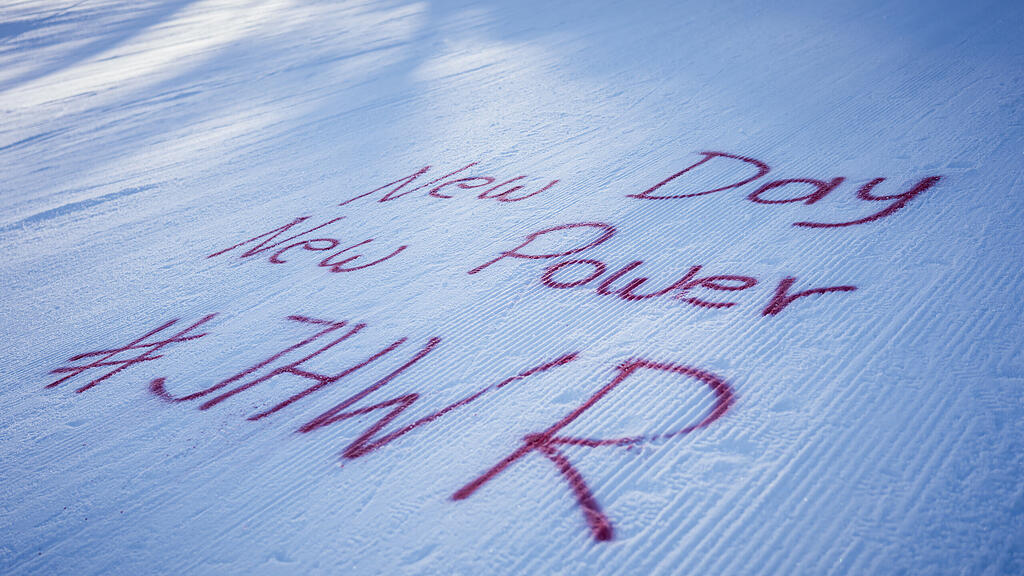 New Day
New Power
#JHWR